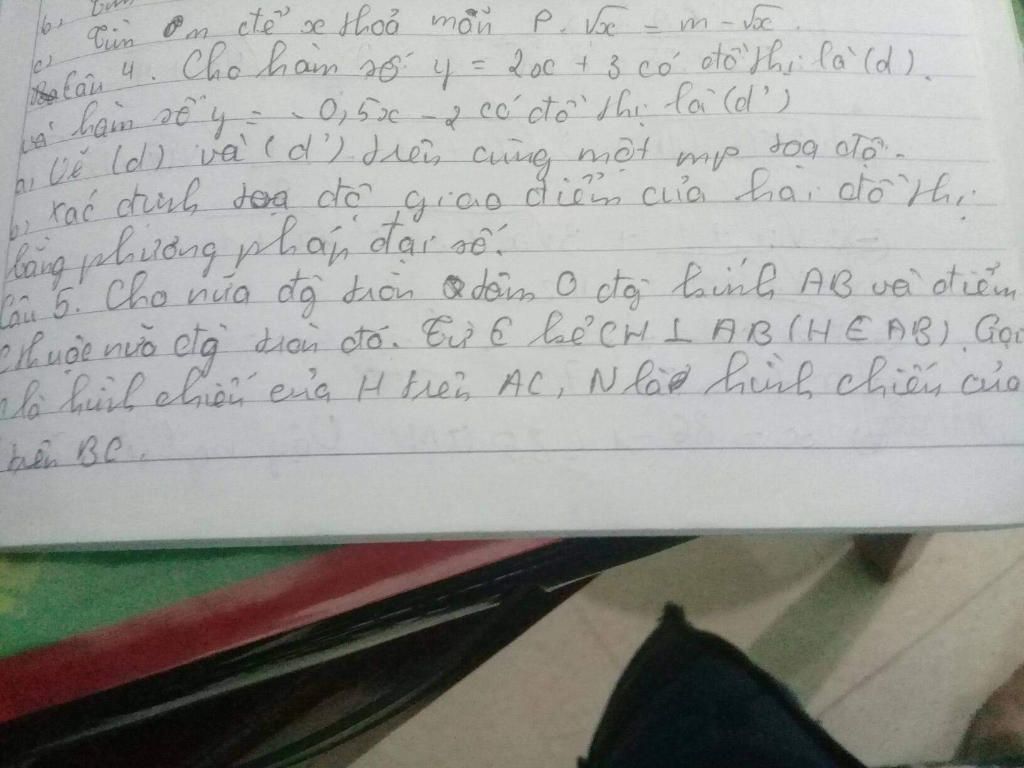 b,
c, Tìm m để x thoả mãn P.√x = m - √x.
Câu 4. Cho hàm số y = 2x + 3 có đồ thị là (d).
và hàm số y = -0,5x - 2 có đồ thị là (d')
a, Vẽ (d) và (d') trên cùng một mp toạ độ.
b, xác định toạ độ giao điểm của hai đồ thị
bằng phương pháp đại số.
Câu 5. Cho nửa đg tròn tâm O đg kính AB và điểm
C thuộc nửa đg tròn đó. Từ C kẻ CH ⊥ AB (H ∈ AB). Gọi
là hình chiếu của H trên AC, N là hình chiếu của
trên BC.